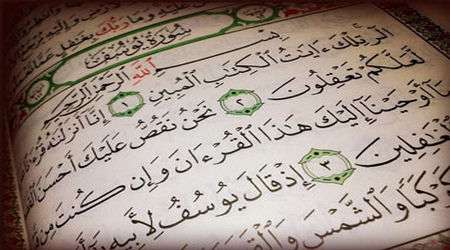 وَمَا رَبُّكَ بِغَٰفِلٍ
سُورَةُ يُوسُفَ
بِسْمِ ٱللَّهِ ٱلرَّحْمَٰنِ ٱلرَّحِيمِ
الٓر تِلْكَ ءَايَٰتُ ٱلْكِتَٰبِ ٱلْمُبِينِ ١ إِنَّآ أَنزَلْنَٰهُ
لَّعَلَّكُمْ تَعْقِلُونَ ٢ نَحْنُ نَقُصُّ عَلَيْكَ أَحْسَنَ
أَوْحَيْنَآ إِلَيْكَ هَٰذَا ٱلْقُرْءَانَ وَإِن كُنتَ مِن
ٱلْغَٰفِلِينَ ٣ إِذْ قَالَ يُوسُفُ لِأَبِيهِ
كَوْكَبًا وَٱلشَّمْسَ